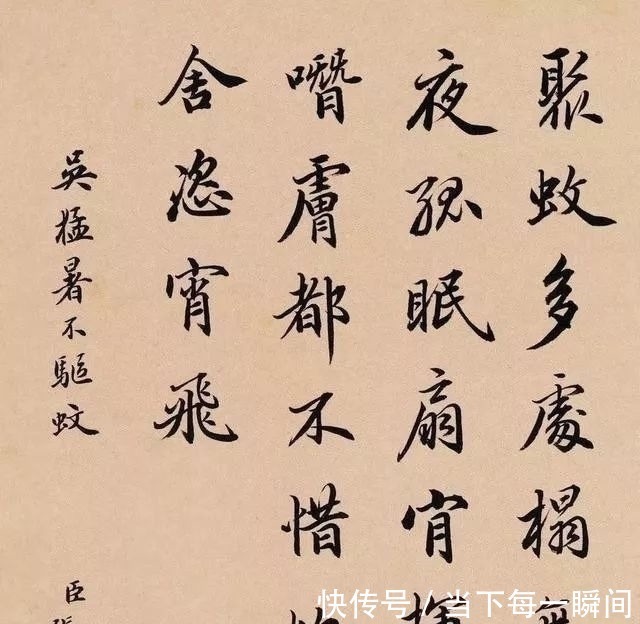 聚蚊多處榻
夜孤眠扇肯揮
噆膚都不惜
舍恣宵飛
吳猛暑不驅蚊
臣
快传号 / 当下每一瞬间